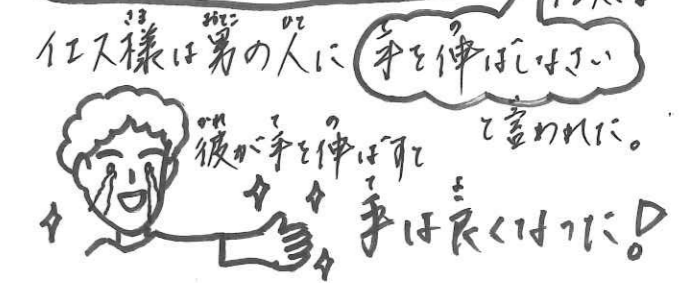 イエス様は男の人に 手を伸ばしなさい
と言われた。
彼が手を伸ばすと
手は良くなった!